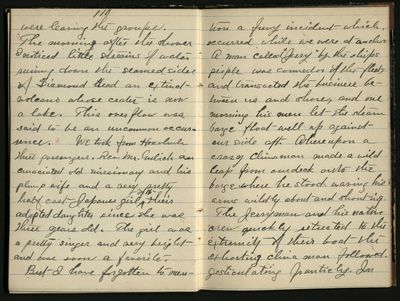 110
were leaving the groupe.
The morning after the shower
I noticed little streams of water
runing down the seamed sides
of Diamond Head an extinct
volcano whose crater is now
a lake. This overflow was
said to be an uncommon occur-
rence. We took from Honolulu
three passengers. Rev Mr. Gulich an
emaciated old missionary and his
plump wife and a very pretty
half cast Japanese girl, their
adopted daughter since she was
three years old. The girl was
a pretty singer and very bright
and was soon a favorite.
But I have forgotten to men-
tion a funy incident which
occurred while we were at anchor
A man called "Jerry" by the ships
people was comodor of the fleet
and transacted the business be-
tween us and shore, and one
morning his men let the steam
barge float well up against
our side aft. Whereupon a
crazy Chinaman made a wild
leap from our deck onto the
barge where he stood waving his
arms wildly about and shouting.
The Jerryman and his native
crew quickly retreated to the
extremity of their boat the
exhorting china man followed
gesticulating franticly. In